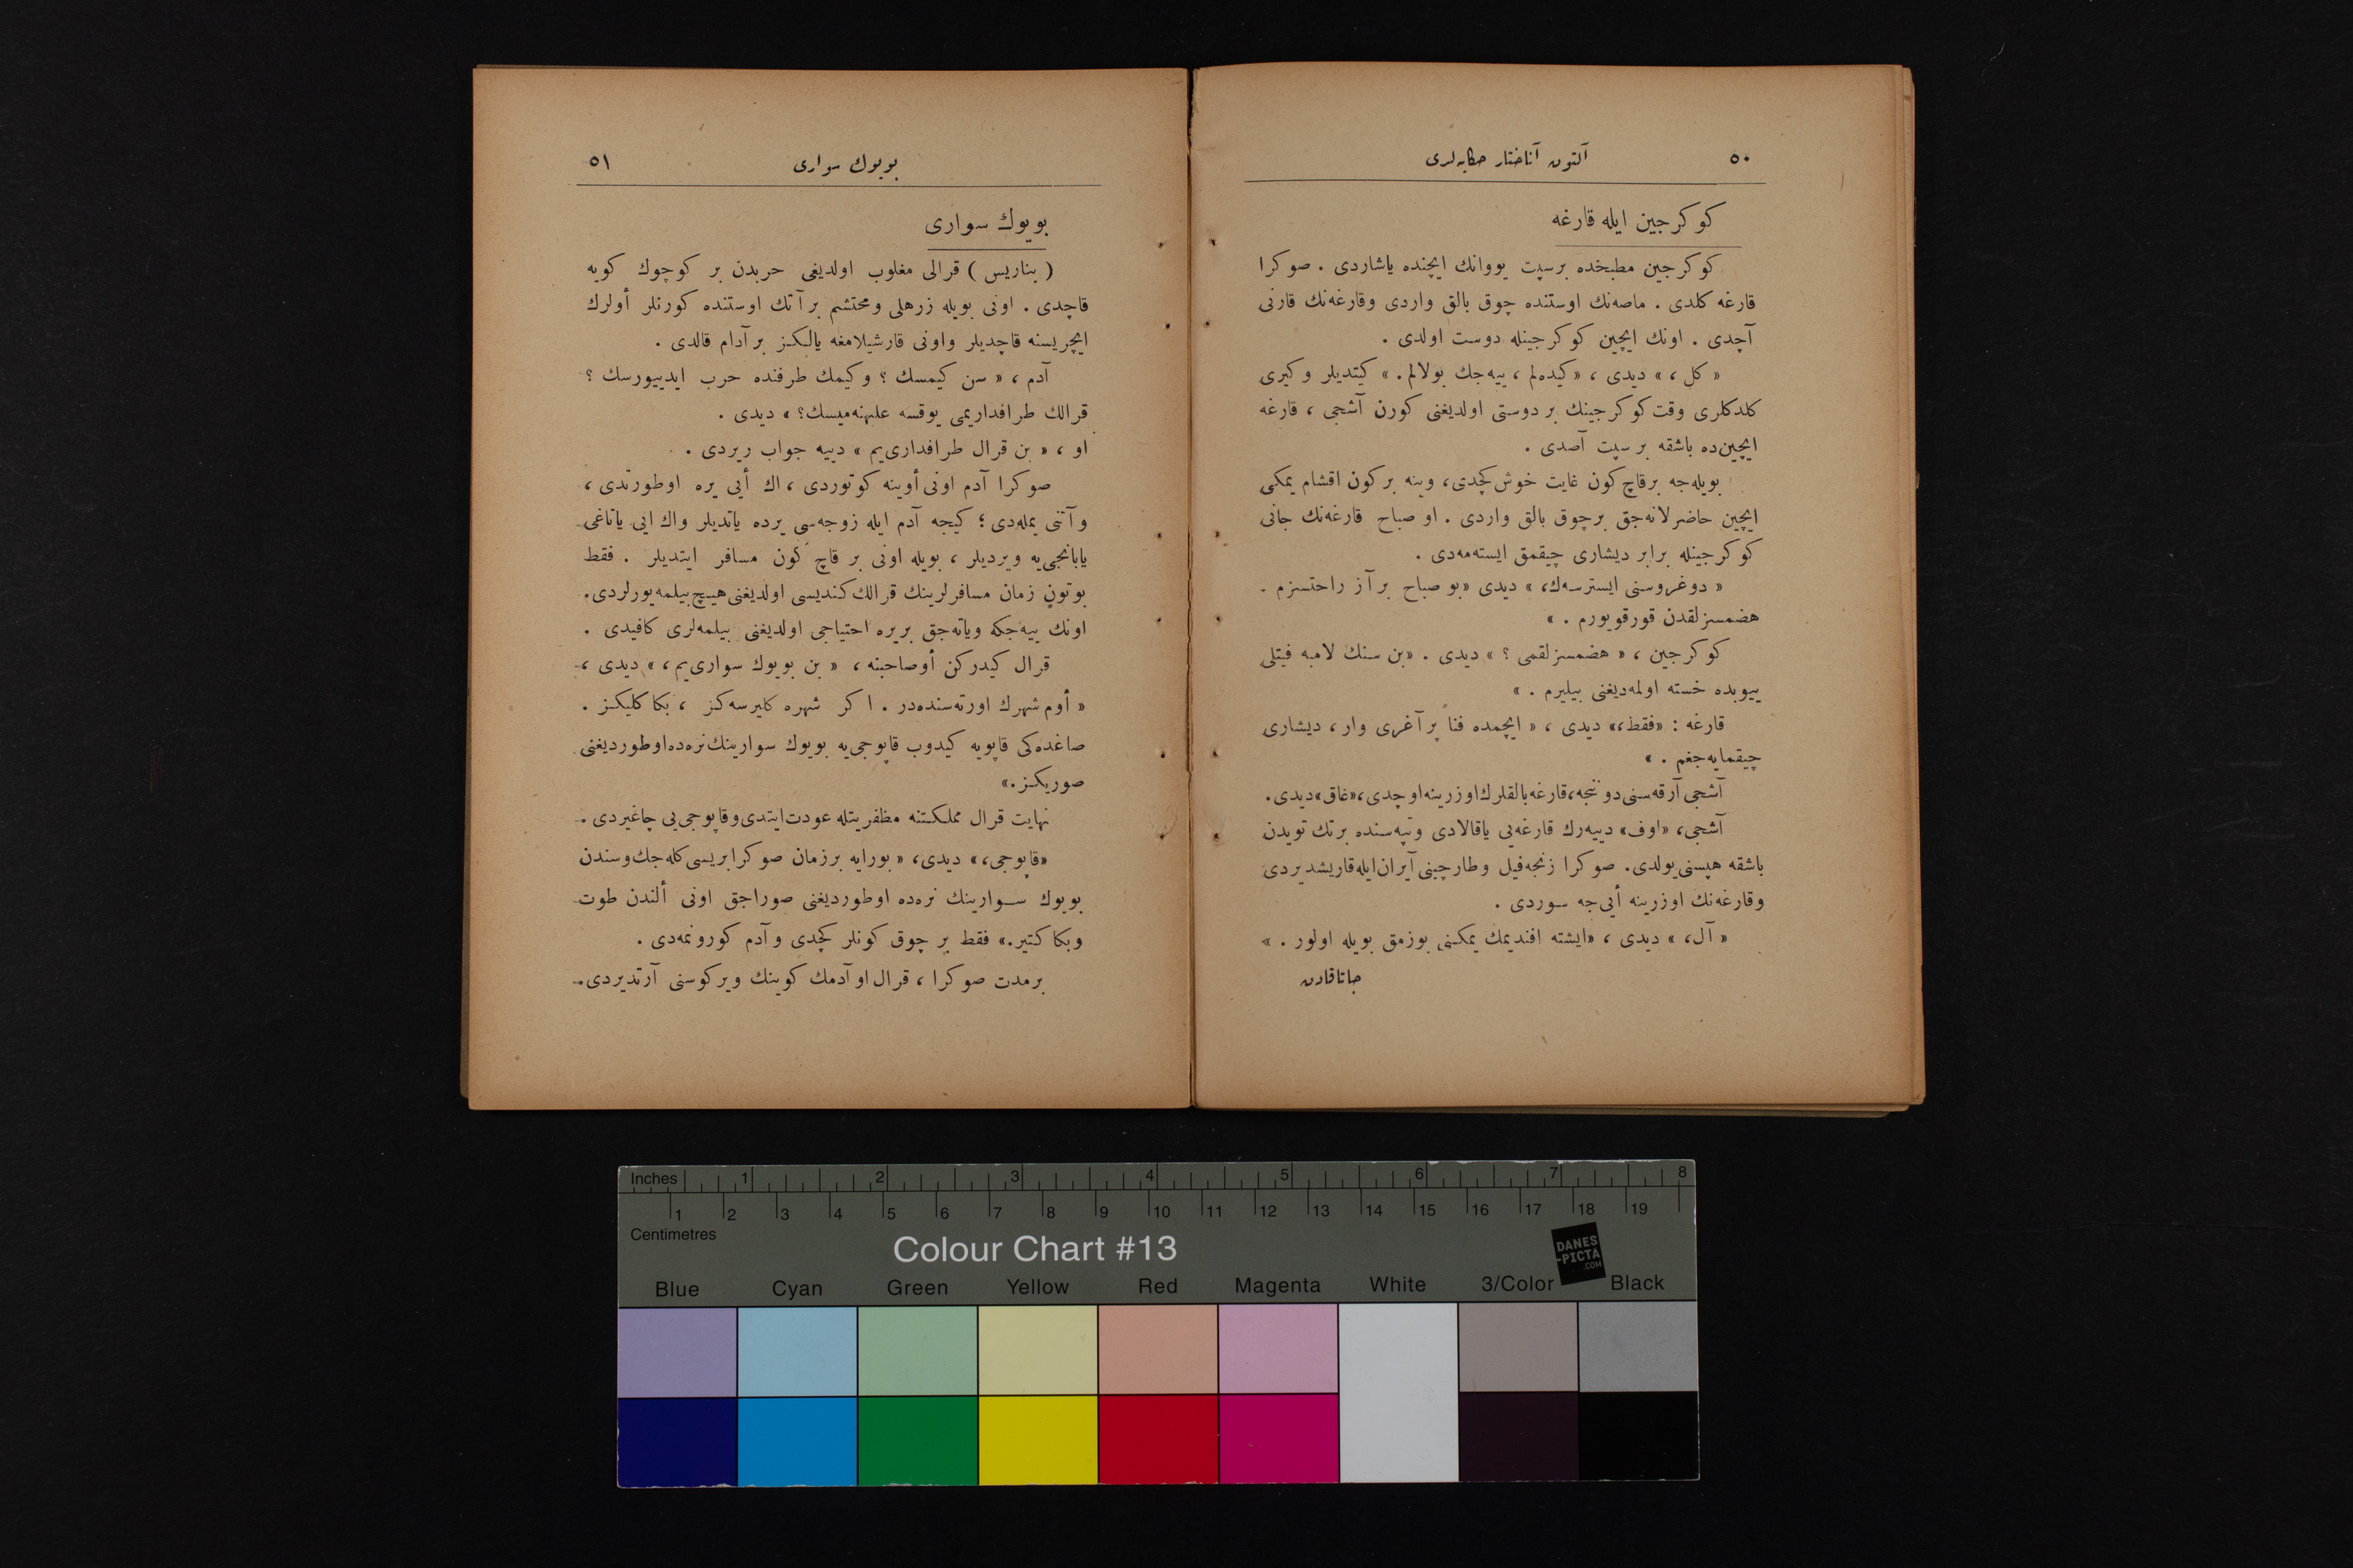 ٥٠
آلتون آناختار حكايه‌لری
كوكرجين ايله قارغه
كوكرجين مطبخده برسپت يووانك ايچنده ياشاردی . صوكرا
قارغه كلدی . ماصه‌نك اوستنده چوق بالق واردی وقارغه‌نك قارنی
آچدی . اونك ايچين كوكرجينله دوست اولدی .
« كل ، » ديدی ، « كيده‌لم ، ييه‌جك بولالم . » كيتديلر وكيری
كلدكلری وقت كوكرجينك بر دوستی اولديغنی كورن آشجی ، قارغه
ايچين‌ده باشقه بر سپت آصدی .
بويله‌جه برقاچ كون غايت خوش كچدی ، وينه بركون اقشام يمكی
ايچين حاضرلانه‌جق برچوق بالق واردی . او صباح قارغه‌نك جانی
كوكرجينله برابر ديشاری چيقمق ايسته‌مه‌دی .
« دوغروسنی ايسترسه‌ك ، » ديدی « بو صباح بر آز راحتسزم .
هضمسزلقدن قورقويورم . »
كوكرجين ، « هضمسزلقمی ؟ » ديدی . « بن سنك لامبه فيتلی
ييوبده خسته اولمه‌ديغنی بيليرم . »
قارغه : « فقط ، » ديدی ، « ايچمده فنا بر آغری وار ، ديشاری
چيقمايه‌جغم . »
آشجی آرقه‌سنی دوننجه ، قارغه بالقلرك اوزرينه اوچدی ، « غاق » ديدی .
آشجی ، « اوف » دييه‌رك قارغه‌يی ياقالادی وتپه‌سنده برتك تويدن
باشقه هپسنی يولدی . صوكرا زنجه‌فيل وطارچينی آيران ايله قاريشديردی
وقارغه‌نك اوزرينه أيی‌جه سوردی .
« آل ، » ديدی ، « ايشته افنديمك يمكنی بوزمق بويله اولور . »
جاتاقادن
بويوك سواری
٥١
بويوك سواری
( بناريس ) قرالی مغلوب اولديغی حربدن بر كوچوك كويه
قاچدی . اونی بويله زرهلی ومحتشم بر آتك اوستنده كورنلر أولرك
ايچريسنه قاچديلر واونی قارشيلامغه يالكز بر آدام قالدی .
آدم ، « سن كيمسك ؟ وكيمك طرفنده حرب ايدييورسك ؟
قرالك طرافداريمی يوقسه عليهنه‌ميسك ؟ » ديدی .
او ، « بن قرال طرافداری‌يم » دييه جواب ريردی .
صوكرا آدم اونی أوينه كوتوردی ، اك أيی يره اوطورتدی ،
وآتنی يمله‌دی ؛ كيجه آدم ايله زوجه‌سی يرده ياتديلر واك ايی ياتاغی
يابانجی‌يه ويرديلر ، بويله اونی بر قاچ كون مسافر ايتديلر . فقط
بوتون زمان مسافرلرينك قرالك كنديسی اولديغنی هيچ بيلمه‌يورلردی .
اونك ييه‌جكه وياته‌جق بريره احتياجی اولديغنی بيلمه‌لری كافيدی .
قرال كيدركن أوصاحبنه ، « بن بويوك سواری‌يم ، » ديدی ،
« أوم شهرك اورته‌سنده‌در . اكر شهره كليرسه‌كز ، بكا كليكز .
صاغده‌كی قاپويه كيدوب قاپوجی‌يه بويوك سوارينك نره‌ده اوطورديغنی
صوريكز . »
نهايت قرال مملكتنه مظفريتله عودت ايتدی وقاپوجی‌يی چاغيردی .
« قاپوجی ، » ديدی ، « بورايه برزمان صوكرا بريسی كله‌جك وسندن
بويوك سوارينك نره‌ده اوطورديغنی صوراجق اونی ألندن طوت
وبكا كتير . » فقط بر چوق كونلر كچدی وآدم كورونمه‌دی .
برمدت صوكرا ، قرال او آدمك كوينك ويركوسنی آرتديردی .
Inches 1 2 3 4 5 6 7 8
1 2 3 4 5 6 7 8 9 10 11 12 13 14 15 16 17 18 19
Centimetres
Colour Chart #13
DANES
-PICTA
.COM
Blue Cyan Green Yellow Red Magenta White 3/Color Black